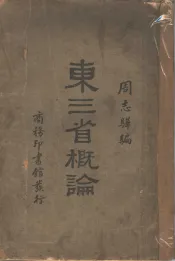 周志驊編
東三省概論
商務印書館發行